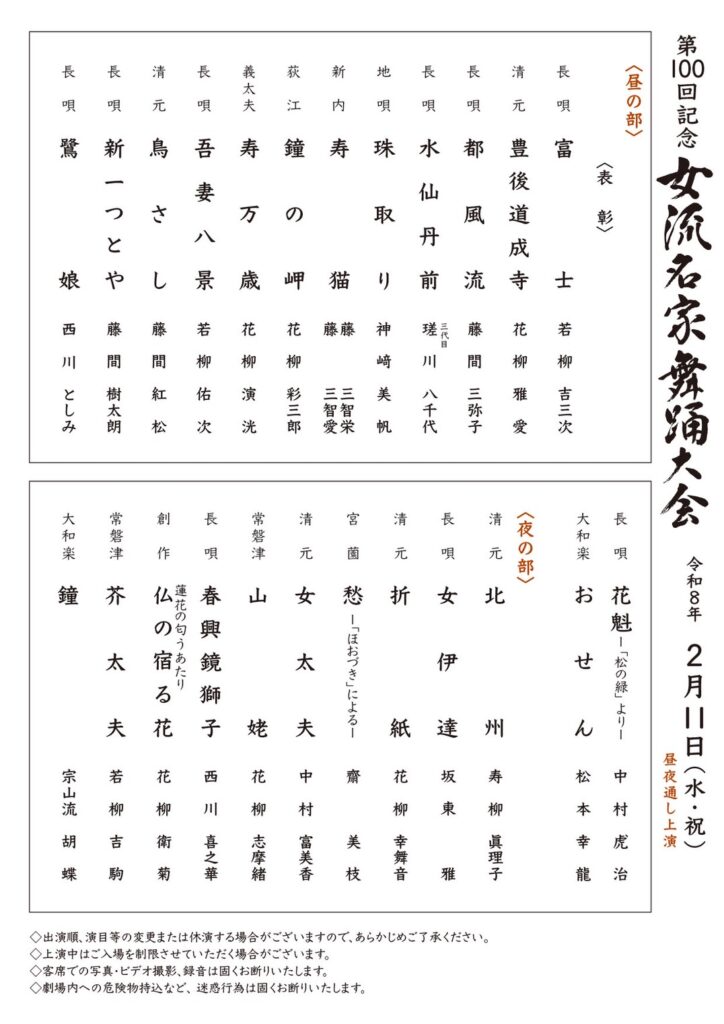 第100回記念 女流名家舞踊大会 令和8年 2月11日(水・祝)
昼夜通し上演
〈昼の部〉
〈表彰〉
長唄 富士 若柳 吉三次
清元 豊後道成寺 花柳 雅愛
長唄 都風流 藤間 三弥子
長唄 水仙丹前 三代目 瑳川 八千代
地唄 珠取り 神﨑 美帆
新内 寿猫 藤 三智栄
藤 三智愛
荻江 鐘の岬 花柳 彩三郎
義太夫 寿万歳 花柳 演洸
長唄 吾妻八景 若柳 佑次
清元 鳥さし 藤間 紅松
長唄 新一つとや 藤間 樹太朗
長唄 鷺娘 西川 としみ
長唄 花魁 ―「松の緑」より― 中村 虎治
大和楽 おせん 松本 幸龍
〈夜の部〉
清元 北州 寿柳 眞理子
長唄 女伊達 坂東 雅
清元 折紙 花柳 幸舞音
宮薗 愁 ―「ほおづき」による― 齋 美枝
清元 女太夫 中村 富美香
常磐津 山姥 花柳 志摩緒
長唄 春興鏡獅子 西川 喜之華
創作 蓮花の匂うあたり 仏の宿る花 花柳 衛菊
常磐津 芥太夫 若柳 吉駒
大和楽 鐘 宗山流 胡蝶
◇出演順、演目等の変更または休演する場合がございますので、あらかじめご了承ください。
◇上演中はご入場を制限させていただく場合がございます。
◇客席での写真・ビデオ撮影、録音は固くお断りいたします。
◇劇場内への危険物持込など、迷惑行為は固くお断りいたします。